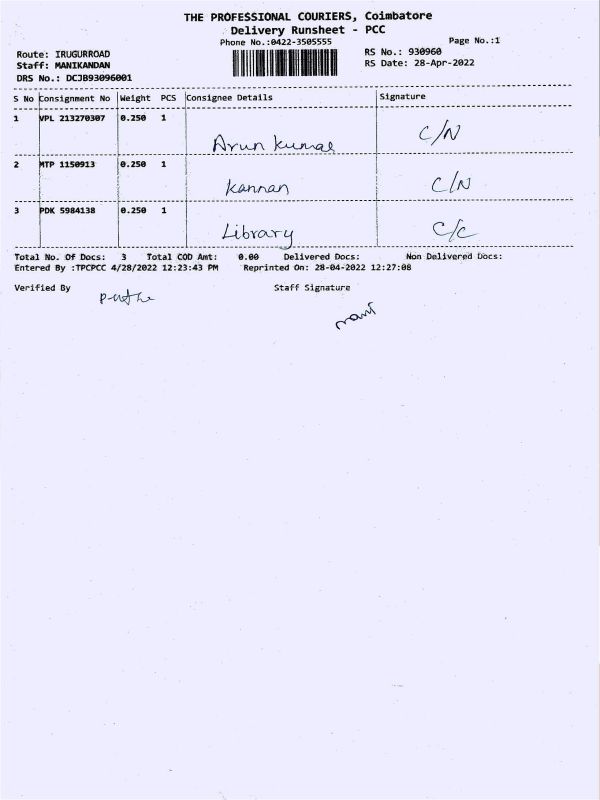 THE PROFESSIONAL COURIERS, Coimbatore
Delivery Runsheet - PCC
Phone No.:0422-3505555
Page No.:1
Route: IRUGURROAD
RS No.: 930960
Staff: MANIKANDAN
RS Date: 28-Apr-2022
DRS No.: DCJB93096001
S No Consignment No Weight PCS Consignee Details Signature
1 VPL 213270307 0.250 1
Arun kumar C/N
2 MTP 1150913 0.250 1
kannan C/N
3 PDK 5984138 0.250 1
Library C/C
Total No. Of Docs: 3 Total COD Amt: 0.00 Delivered Docs: Non Delivered Docs:
Entered By :TPCPCC 4/28/2022 12:23:43 PM Reprinted On: 28-04-2022 12:27:08
Verified By Staff Signature
mani